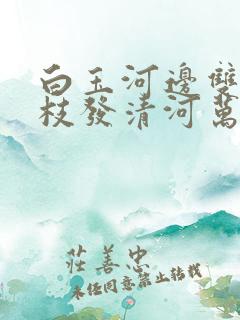 白玉河邊雙
枝發清河萬
莊善忠
未经同意禁止转载